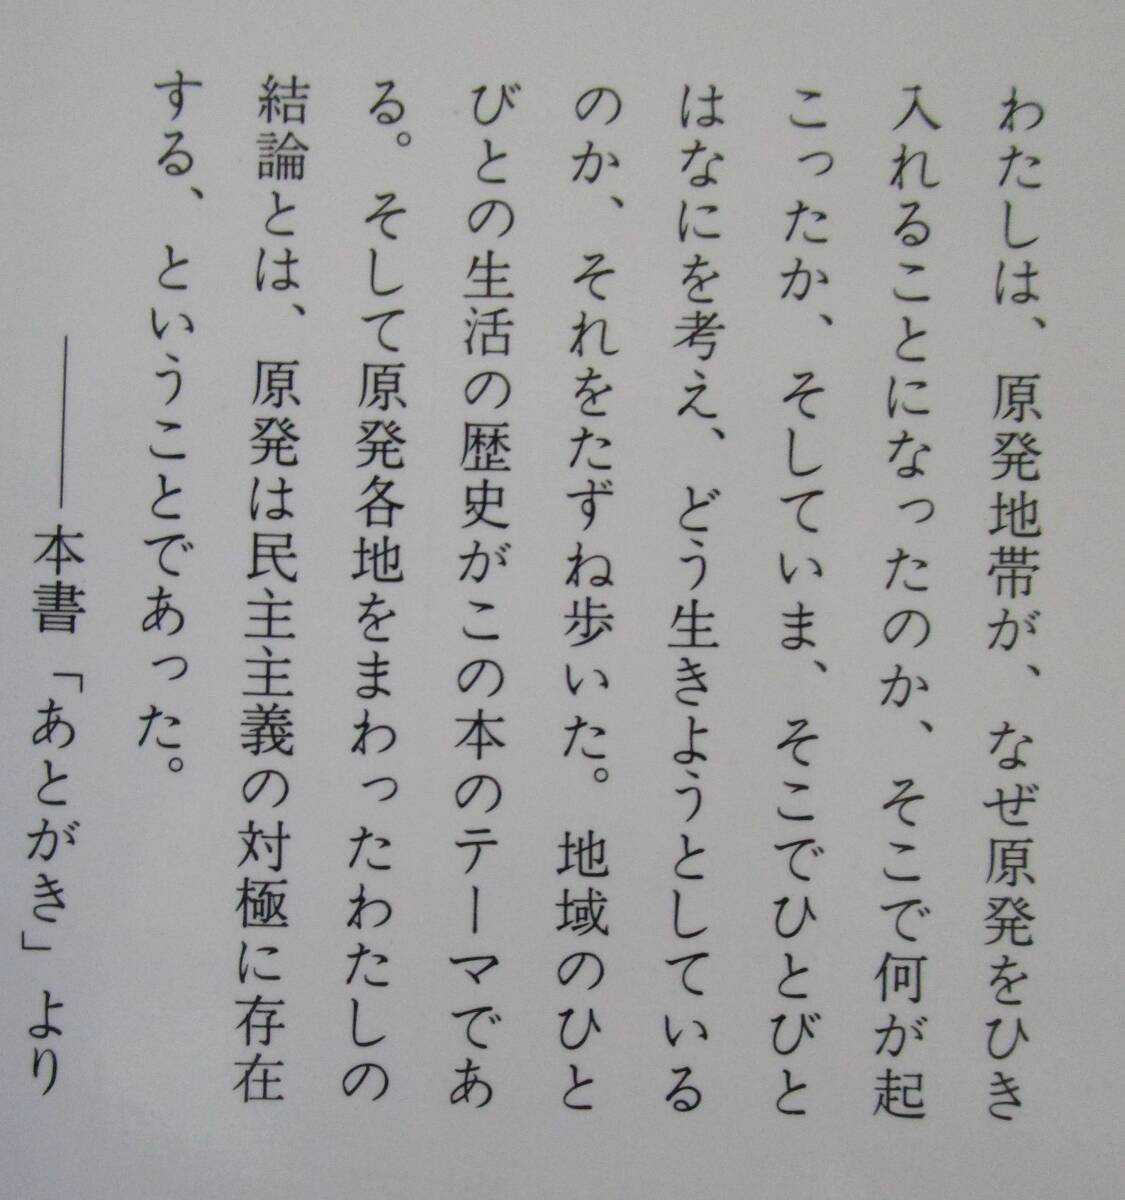 わたしは、原発地帯が、なぜ原発をひき
入れることになったのか、そこで何が起
こったか、そしていま、そこでひとびと
はなにを考え、どう生きようとしている
のか、それをたずね歩いた。地域のひと
びとの生活の歴史がこの本のテーマであ
る。そして原発各地をまわったわたしの
結論とは、原発は民主主義の対極に存在
する、ということであった。
――本書「あとがき」より